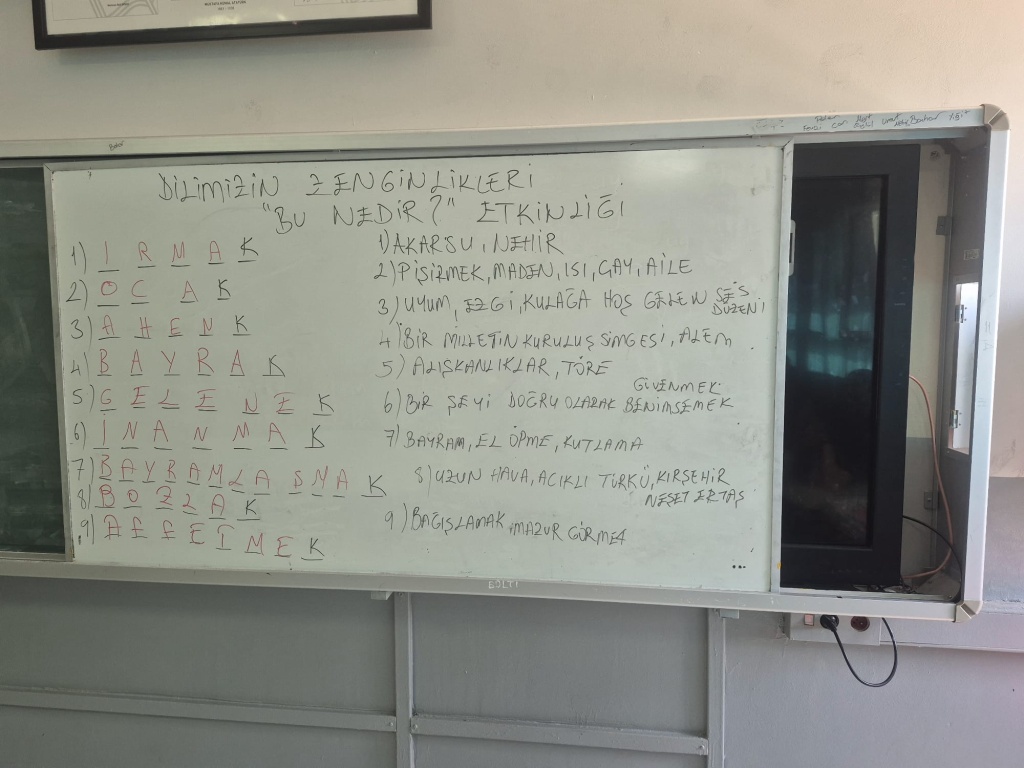 MUSTAFA KEMAL ATATÜRK
DİLİMİZİN ZENGİNLİKLERİ
"BU NEDİR?" ETKİNLİĞİ
1) I R M A K
2) O C A K
3) A H E N K
4) B A Y R A K
5) G E L E N E K
6) İ N A N M A K
7) B A Y R A M L A Ş M A K
8) B O Z L A K
9) A F F E T M E K
1) AKARSU, NEHİR
2) PİŞİRMEK, MADEN, ISI, ÇAY, AİLE
3) UYUM, EZGİ, KULAĞA HOŞ GELEN SES DÜZENİ
4) BİR MİLLETİN KURULUŞ SİMGESİ, ALEM
5) ALIŞKANLIKLAR, TÖRE
GÜVENMEK
6) BİR ŞEYİ DOĞRU OLARAK BENİMSEMEK
7) BAYRAM, EL ÖPME, KUTLAMA
8) UZUN HAVA, ACIKLI TÜRKÜ, KIRŞEHİR
NEŞET ERTAŞ
9) BAĞIŞLAMAK, MAZUR GÖRMEK